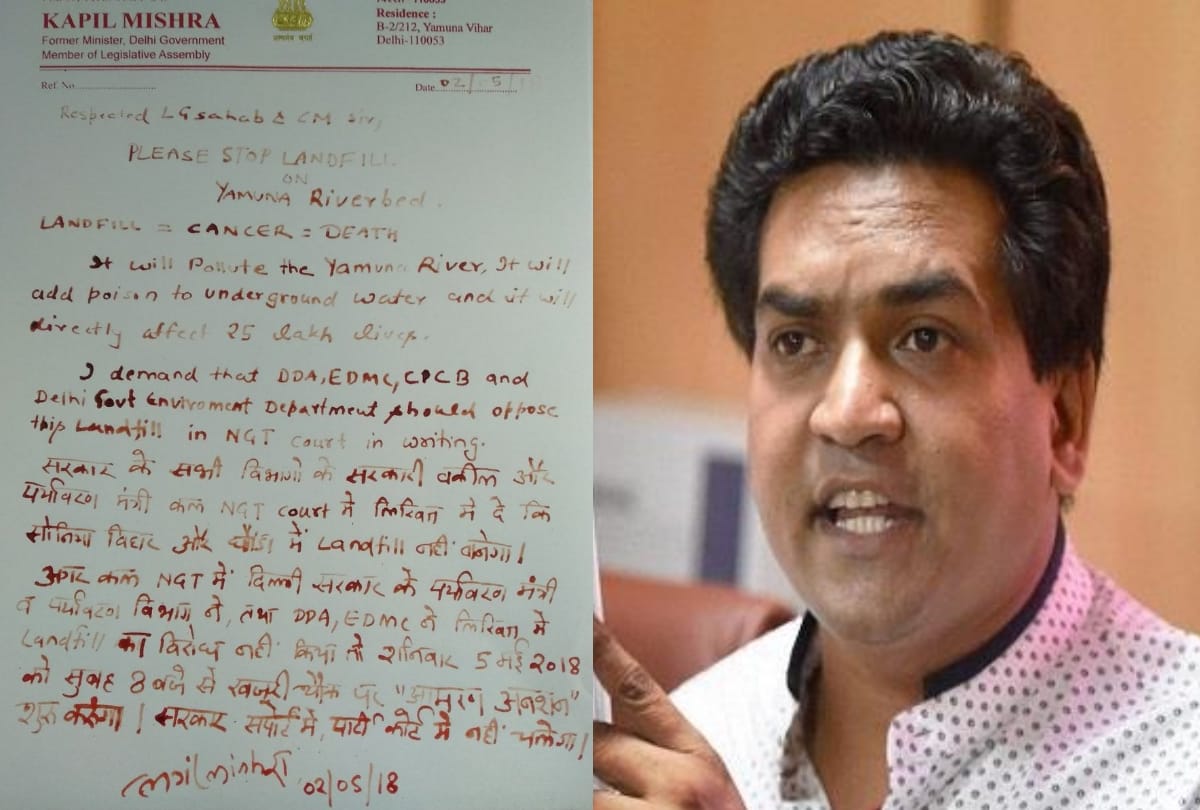 KAPIL MISHRA
Former Minister, Delhi Government
Member of Legislative Assembly
Residence :
B-2/212, Yamuna Vihar
Delhi-110053
Ref. No.
Date 02/05/1
Respected LG sahab & CM sir,
PLEASE STOP LANDFILL
ON
YAMUNA Riverbed.
LANDFILL = CANCER = DEATH
It will Pollute the Yamuna River, It will
add poison to underground water and it will
directly affect 25 lakh lives.
I demand that DDA, EDMC, CPCB and
Delhi Govt Enviroment Department should oppose
this Landfill in NGT court in writing.
सरकार के सभी विभागो के सरकारी वकील और
पर्यावरण मंत्री कल NGT court में लिखित मे दे कि
सोनिया विहार और घौंडा में Landfill नहीं बनेगा।
अगर कल NGT में दिल्ली सरकार के पर्यावरण मंत्री
व पर्यावरण विभाग ने, तथा DDA, EDMC ने लिखित में
Landfill का विरोध नहीं किया तो शनिवार 5 मई 2018
को सुबह 8 बजे से खजूरी चौक पर "आमरण अनशन"
शुरु करूंगा। सरकार सपोर्ट में, पार्टी कोर्ट में नहीं चलेगा।
02/05/18